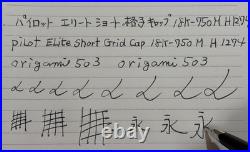 パイロット エリート ショート 格子 キャップ 18K-750 M H1294
pilot Elite Short Grid Cap 18K-750 M H 1294
origami 503 origami 503
永 永 永